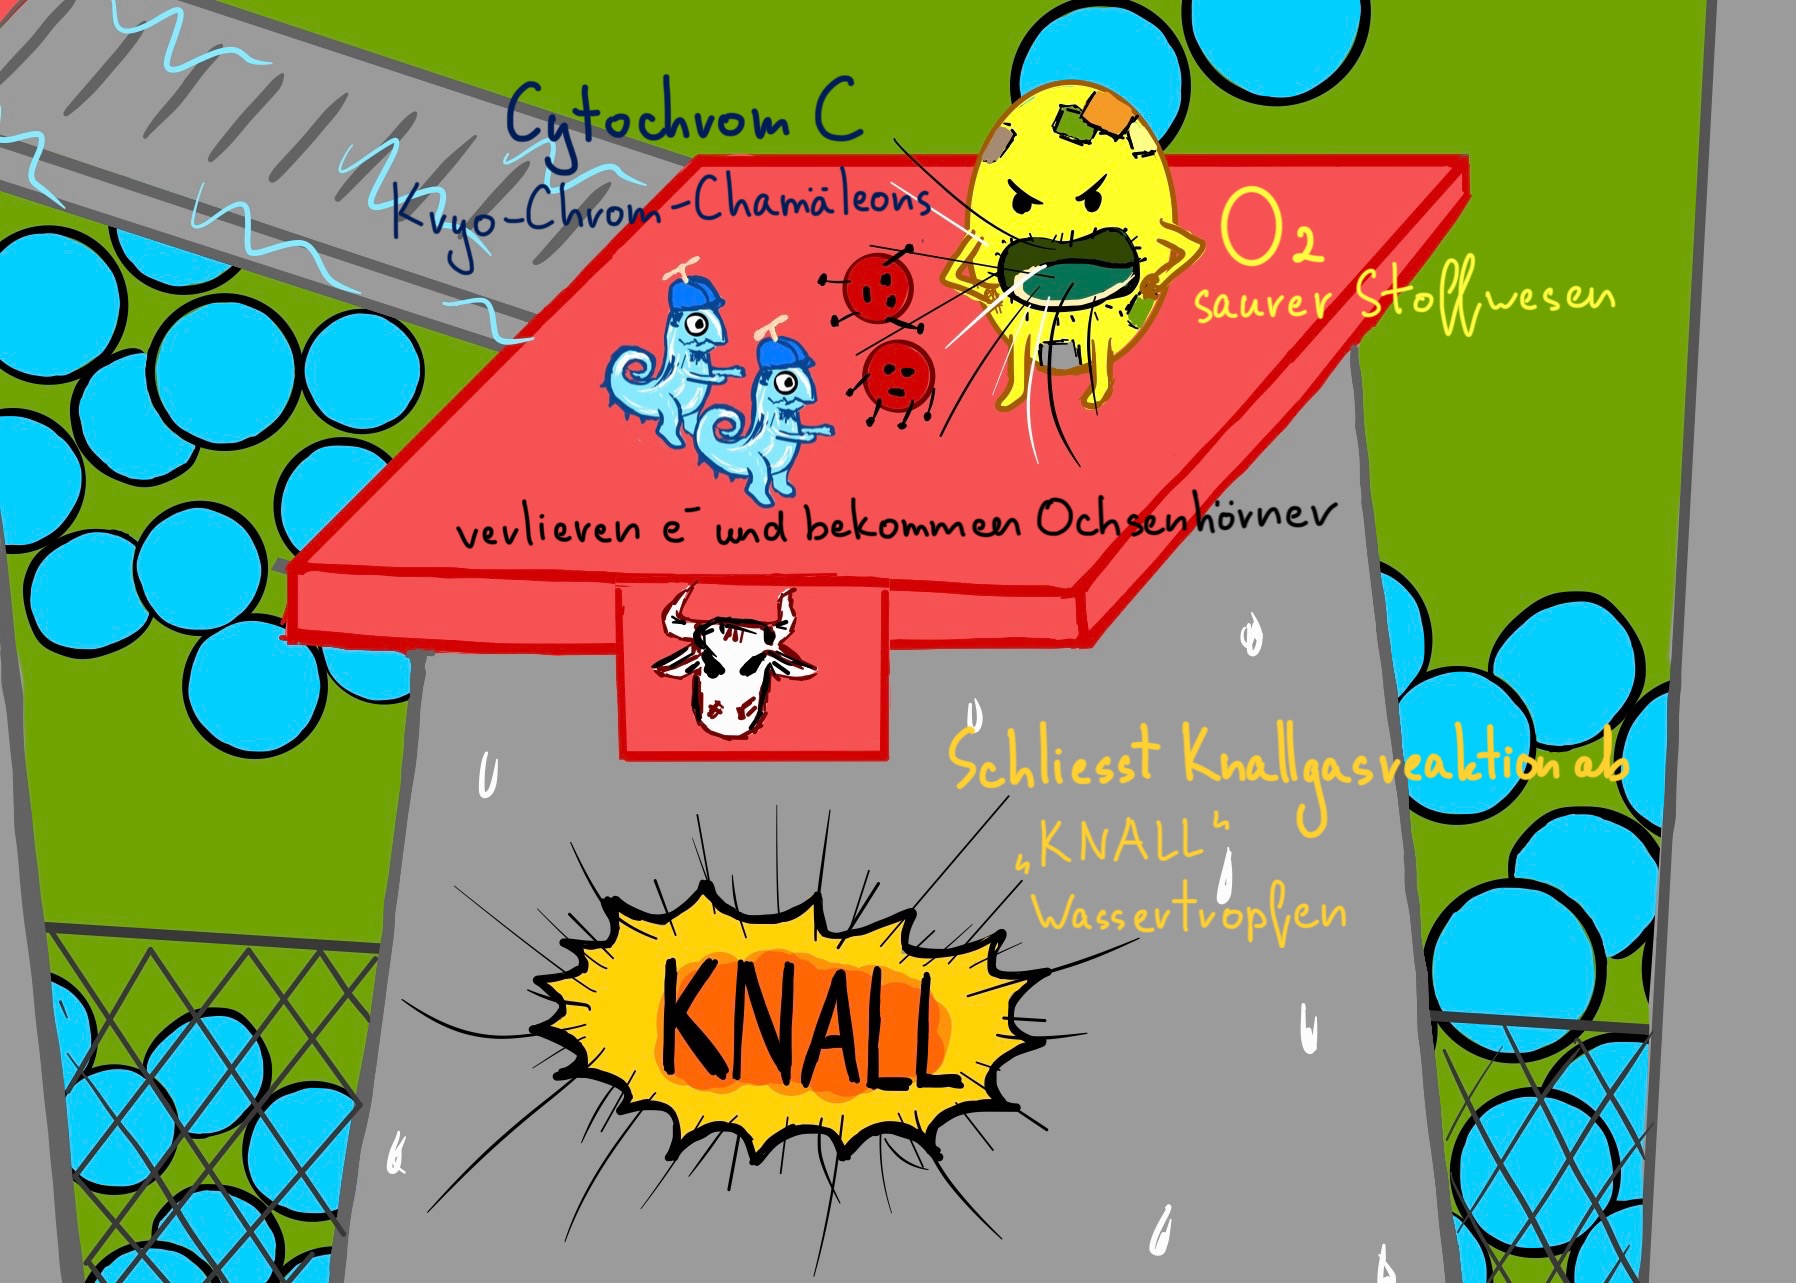 Cytochrom C
Kryo-Chrom-Chamäleons
O₂
saurer Stoffwesen
verlieren e⁻ und bekommen Ochsenhörner
Schliesst Knallgasreaktion ab
„KNALL“
Wassertropfen
KNALL